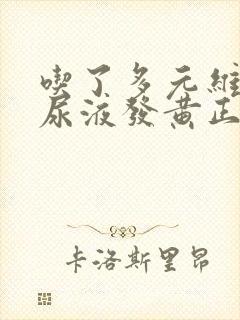 喫了多元維
尿液發黃正
卡洛斯里昂